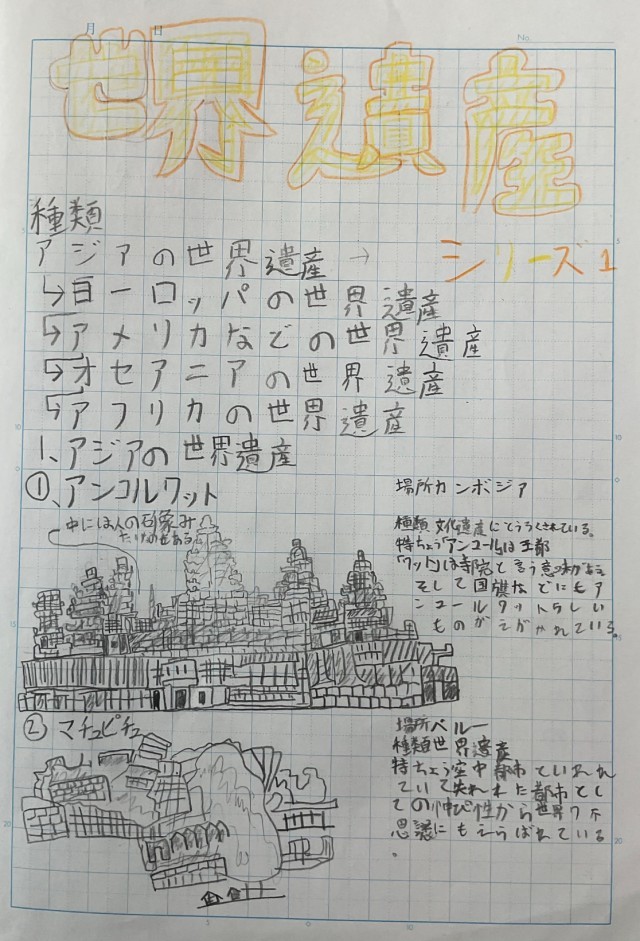 月 日
No.
世界遺産
種類
アジアの世界遺産 → シリーズ1
↳ヨーロッパの世界遺産
↳アメリカなどの世界遺産
↳オセアニアの世界遺産
↳アフリカの世界遺産
1、アジアの世界遺産
①、アンコルワット
場所カンボジア
中には人の石象み
たいなのもある
種類 文化遺産にとうろくされている。
特ちょう「アンコール」は王都
「ワット」は寺院と言う意味が
そして国旗などにもア
ンコールワットらしい
ものがえがかれている。
②マチュピチュ
場所ペルー
種類世界遺産
特ちょう空中都市といわれ
ていて失われた都市とし
ての神ぴ性から世界7不
思議にもえらばれている
。